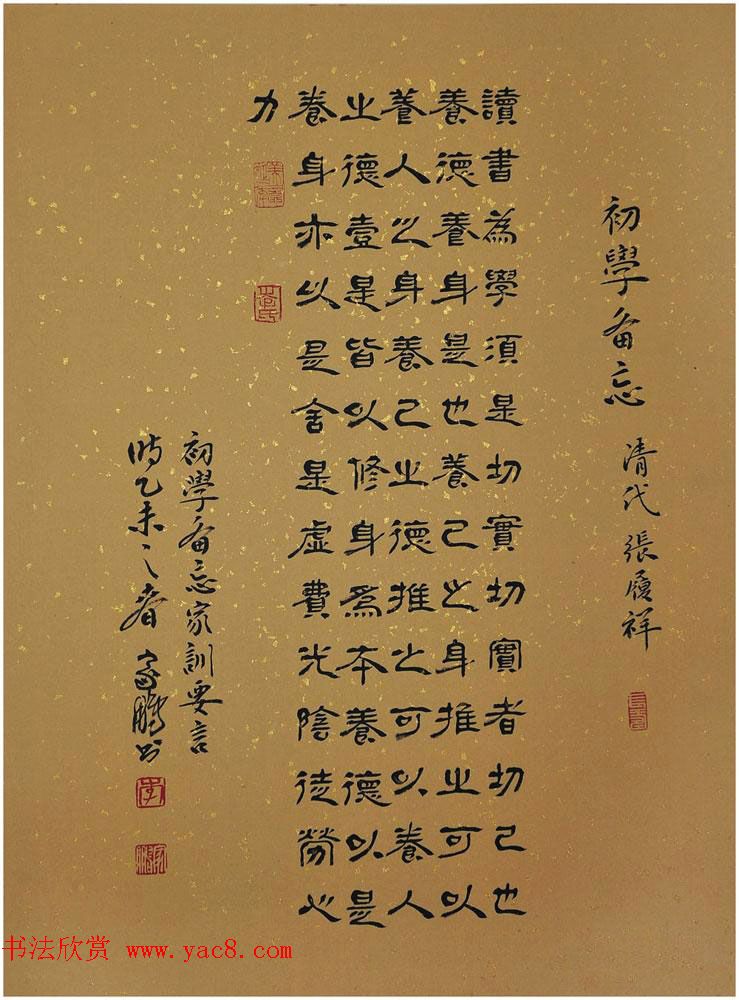 初學备忘 清代 張履祥
讀書為學須是切實切實者切己也
養德養身是也養己之身推之可以
養人之身養己之德推之可以養人
之德壹是皆以修身為本養德以是
養身亦以是舍是虛費光陰徒勞心
力
初學备忘家訓要言
時乙未之春 家鵬书
李
书法欣赏 www.yac8.com